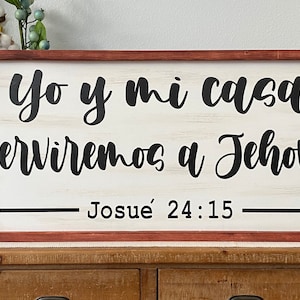 Yo y mi casa
serviremos a Jehová
Josué 24:15